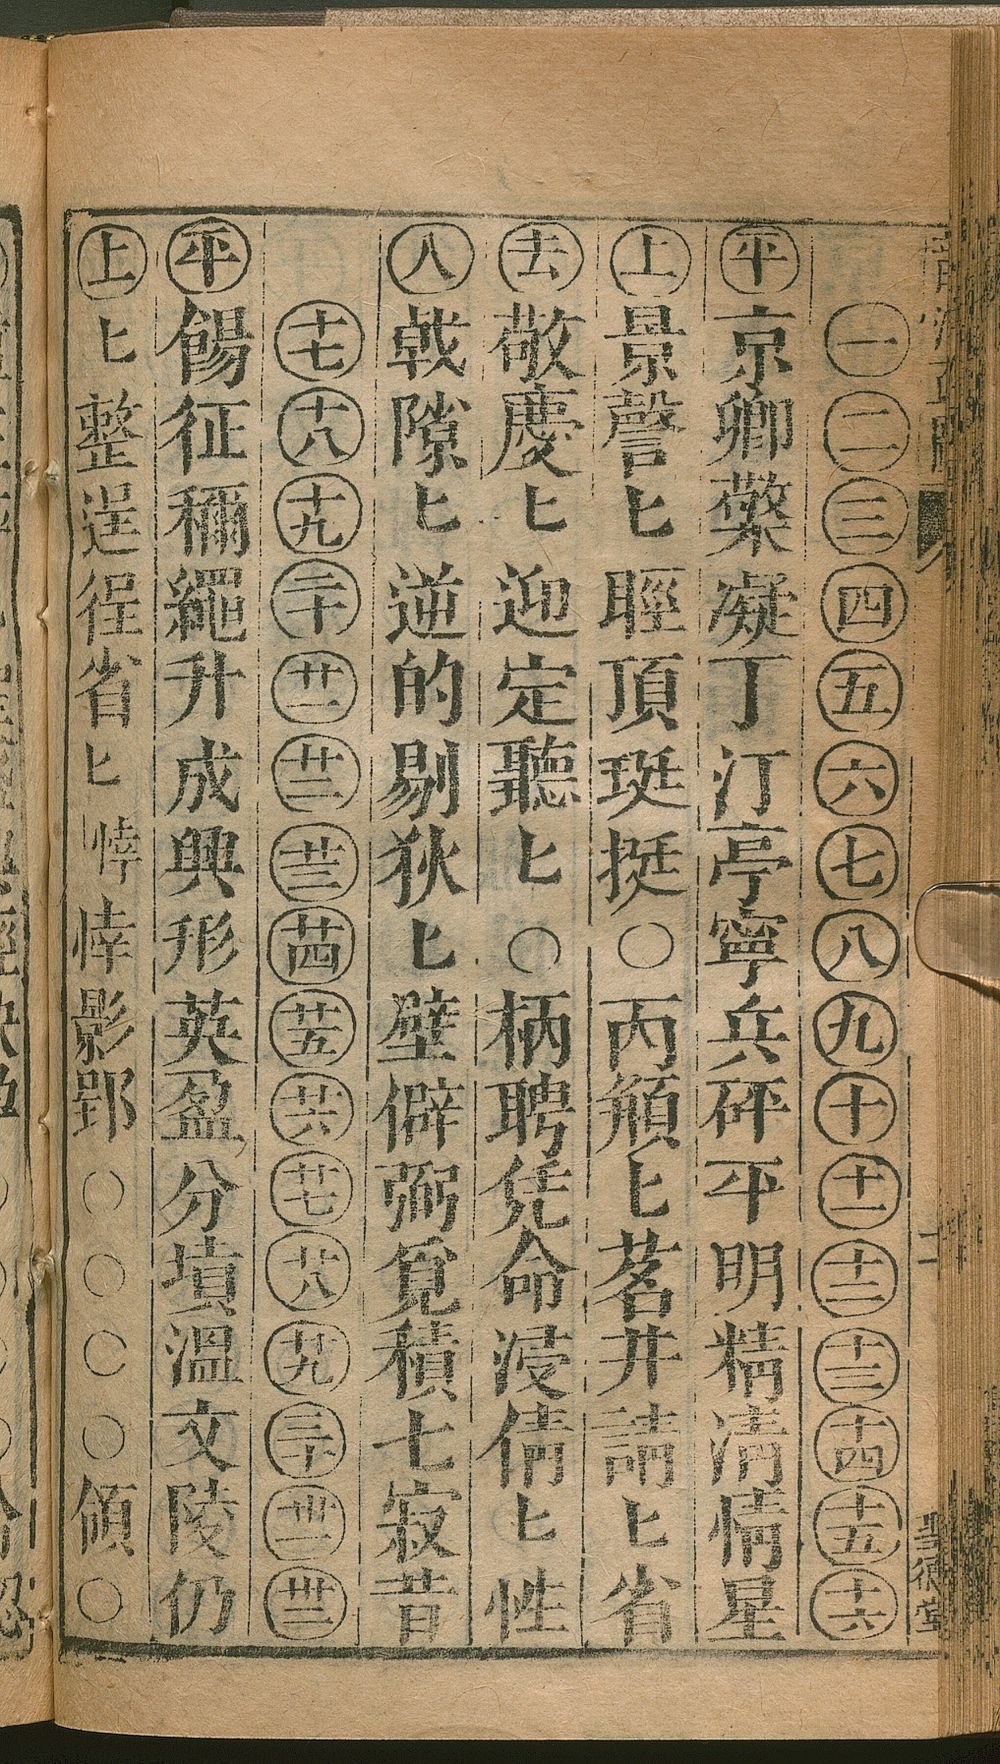 一二三四五六七八九十十一十二十三十四十五十六
平京卿檠凝丁汀亭寧兵砰平明精清情星
上景謦匕脛頂珽挺○丙頩匕茗井請匕省
去敬慶匕迎定聽匕○柄聘凭命浸倩匕性
入戟隙匕逆的剔狄匕壁僻弼覓積七寂昔
十七十八十九二十廿一廿二廿三廿四廿五廿六廿七廿八廿九三十卅一卅二
平餳征稱繩升成興形英盈分墳溫文陵仍
上匕整逞徎省匕悻悻影郢○○○○領○
二